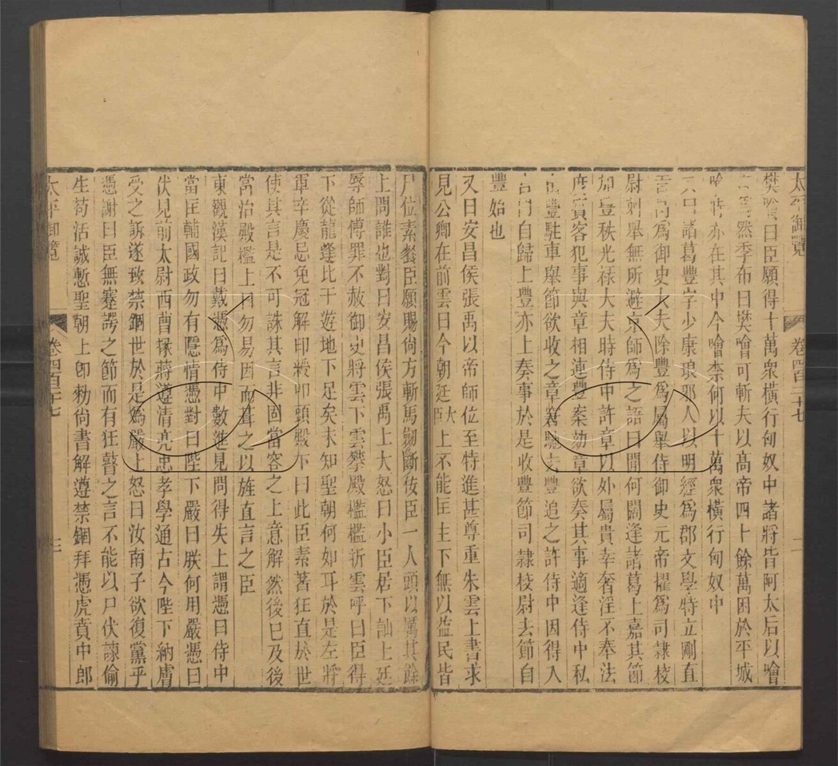 太平御覽 卷四百二十七 二
樊噲曰臣願得十萬衆橫行匈奴中諸將皆阿太后以噲
言爲然季布曰樊噲可斬夫以高帝四十餘萬困於平城
噲時亦在其中今噲柰何以十萬衆橫行匈奴中
又曰諸葛豐字少康琅邪人以明經爲郡文學特立剛直
貢禹爲御史大夫除豐爲屬舉侍御史元帝擢爲司隸校
尉刺舉無所避京師爲之語曰間何闊逢諸葛上嘉其節
加豐秩光祿大夫時侍中許章以外屬貴幸奢淫不奉法
度賓客犯事與章相連豐案劾章欲奏其事適逢侍中私
出豐駐車舉節欲收之章窘馳去豐追之許侍中因得入
宮門自歸上豐亦上奏事於是收豐節司隸校尉去節自
豐始也
又曰安昌侯張禹以帝師位至特進甚尊重朱雲上書求
見公卿在前雲曰今朝廷大臣上不能匡主下無以益民皆
尸位素餐臣願賜尚方斬馬劒斷佞臣一人頭以厲其餘
上問誰也對曰安昌侯張禹上大怒曰小臣居下訕上廷
辱師傅罪不赦御史將雲下雲攀殿檻檻折雲呼曰臣得
下從龍逢比干遊地下足矣未知聖朝何如耳於是左將
軍辛慶忌免冠解印綬叩頭殿下曰此臣素著狂直於世
使其言是不可誅其言非固當容之上意解然後已及後
當治殿檻上曰勿易因而葺之以旌直言之臣
東觀漢記曰戴憑爲侍中數進見問得失上謂憑曰侍中
當匡輔國政勿有隱情憑對曰陛下嚴曰朕何用嚴憑曰
伏見前太尉西曹掾蔣遵清亮忠孝學通古今陛下納膚
受之訴遂致禁錮世於是爲嚴上怒曰汝南子欲復黨乎
憑謝曰臣無蹇諤之節而有狂瞽之言不能以尸伏諫偷
生苟活誠慙聖朝上卽勑尚書解遵禁錮拜憑虎賁中郎
太平御覽 卷四百二十七 三